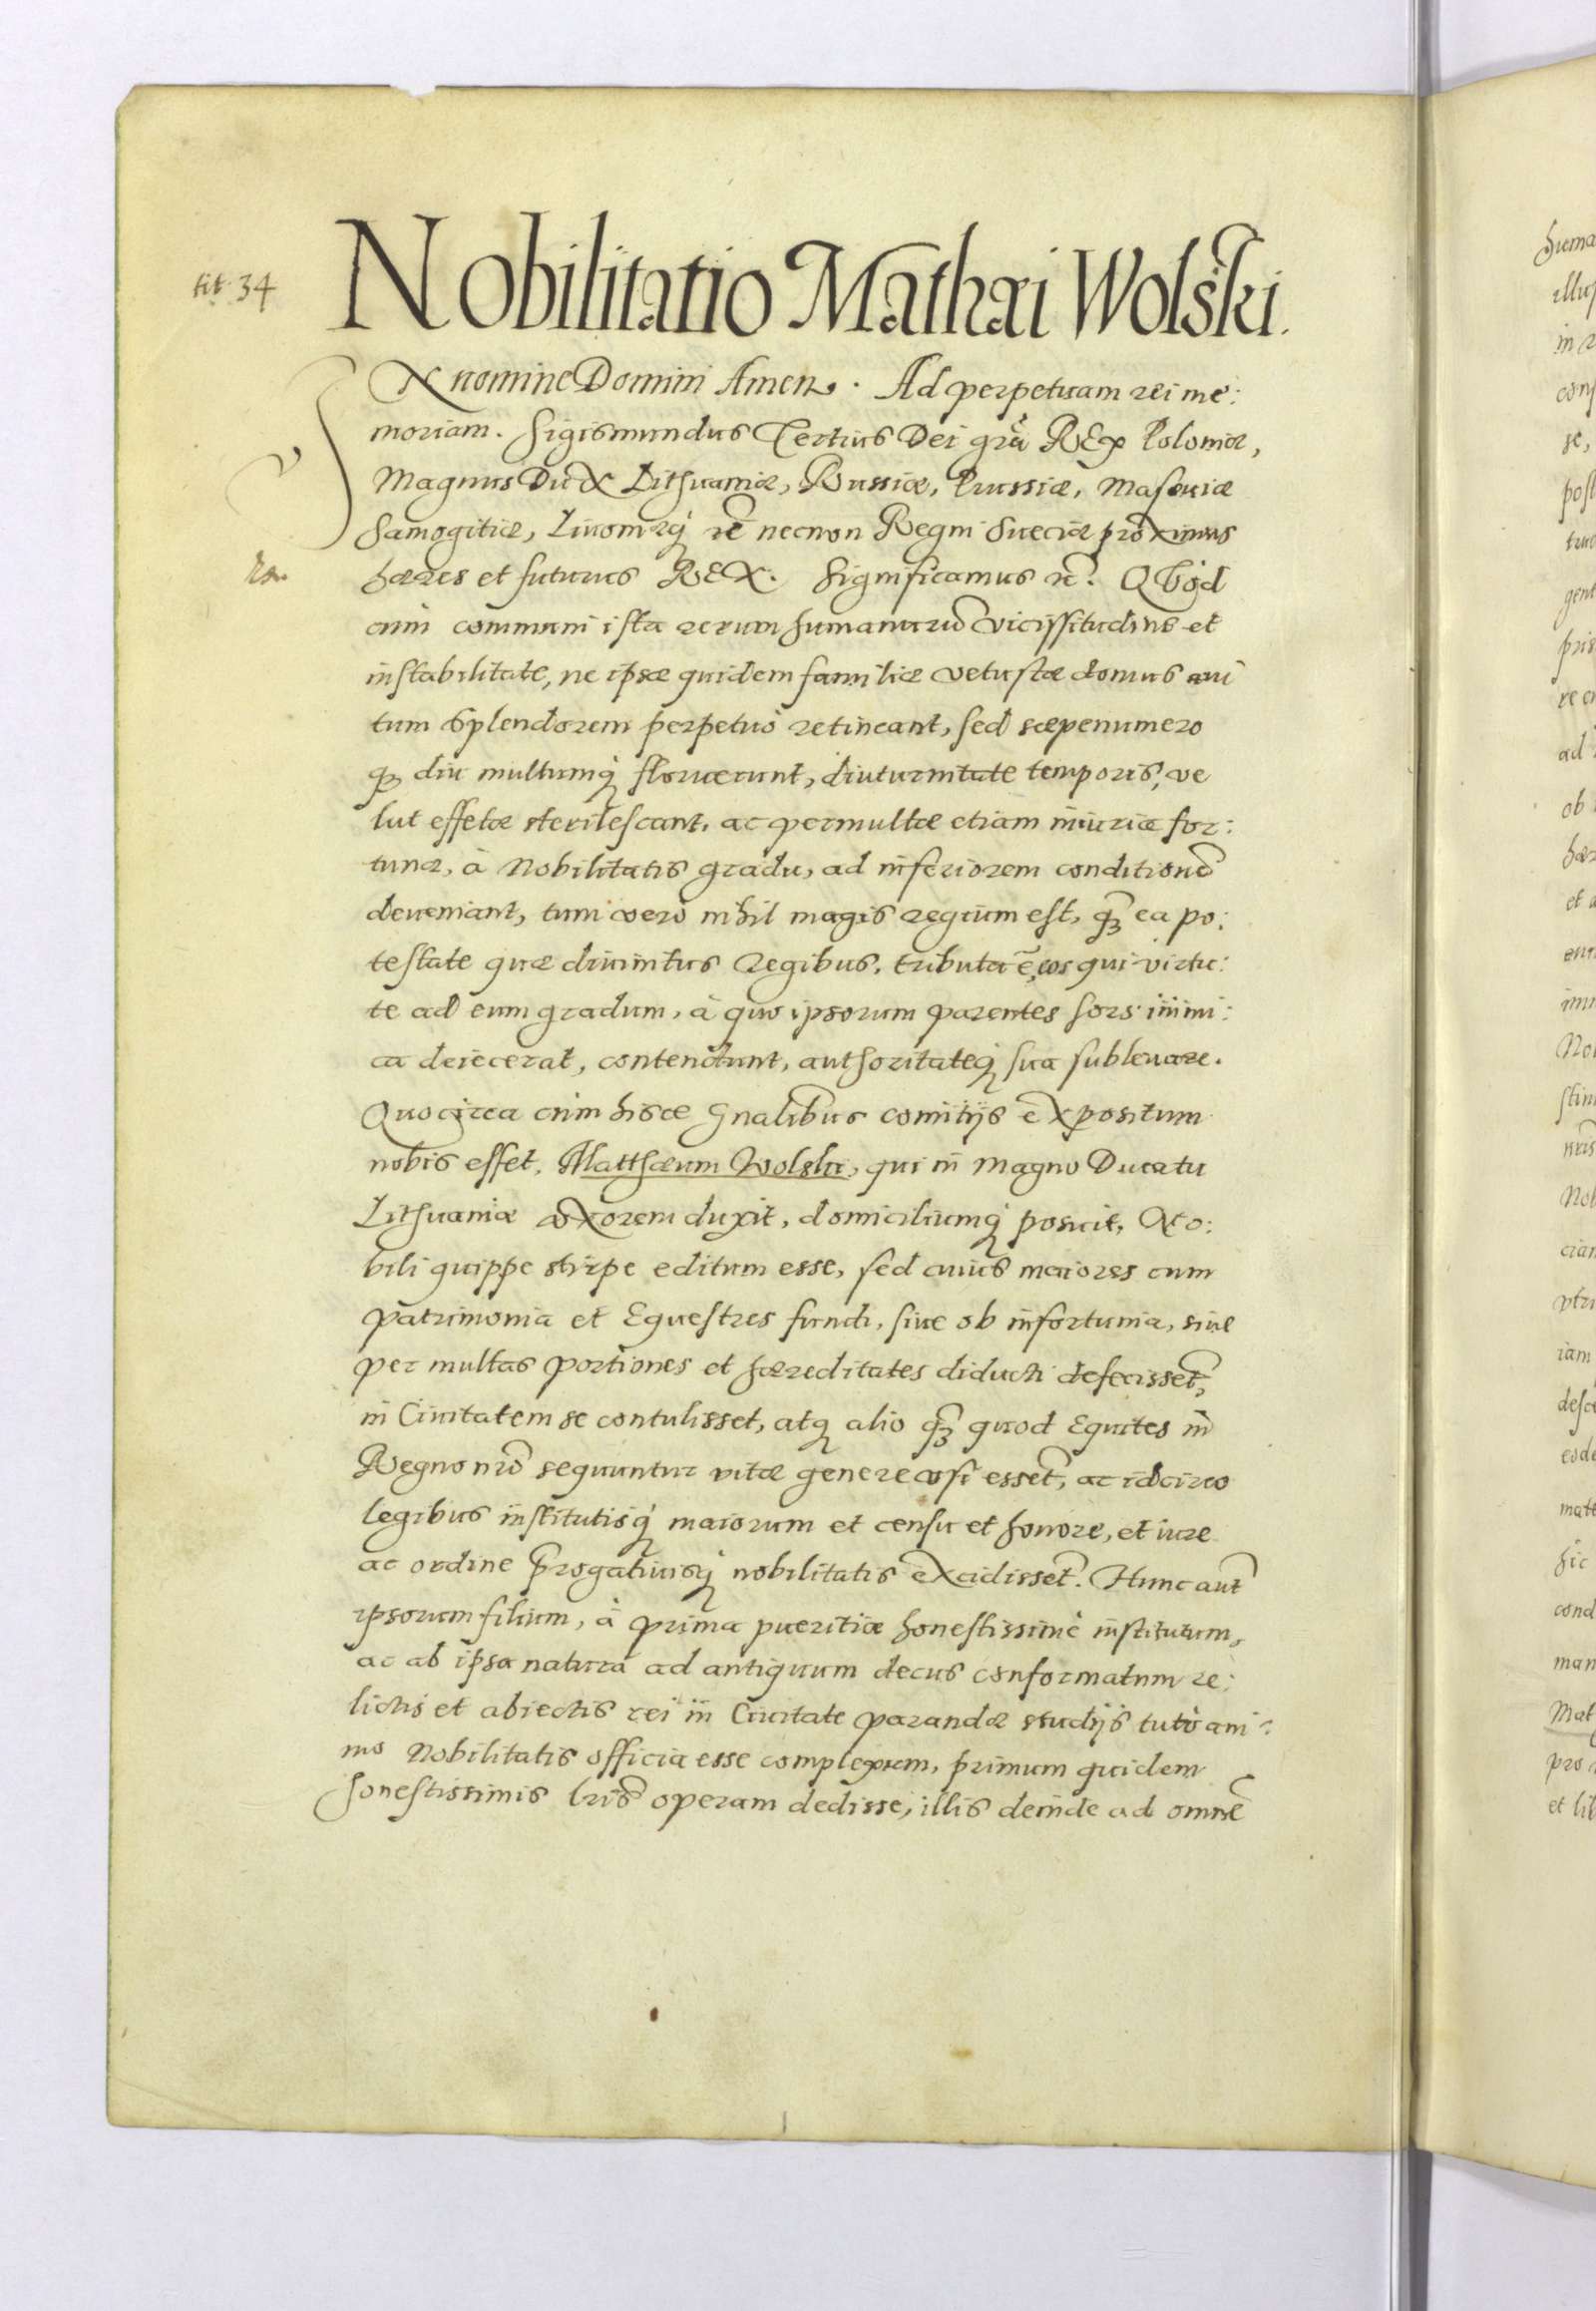 tit. 34
Nobilitatio Mathæi Wolski.
IN nomine Domini Amen. Ad perpetuam rei me:
moriam. Sigismundus Tertius Dei grã REX Poloniæ,
Magnus DuX Lithuaniæ, Russiæ, Prussiæ, Masouiæ
Samogitiæ, Liuoniæq₃ necnon Regni Sueciæ proXimus
hæres et futurus REX. Significamus QVod
cùm communi ista rerum humanarũ vicissitudine et
instabilitate, ne ipsæ quidem familiæ vetustæ domus aui
tum splendorem perpetuò retineant, sed sæpenumero
diu multumq₃ floruerunt, diuturnitate temporis, ve
lut effetæ sterilescant, ac permultæ etiam iniuriæ for:
tunæ, à Nobilitatis gradu, ad inferiorem conditionẽ
deueniant, tum verò nihil magis regium est, q̃₃ ea po:
testate quæ diuinitus Regibus, tributa ẽ, eos qui virtu:
te ad eum gradum, à quo ipsorum parentes sors inimi:
ca deiecerat, contendunt, authoritateq₃ sua subleuare.
Quocirca cùm hisce gnãlibus comitijs eXpositum
nobis esset, Matthæum Wolski, qui in Magno Ducatu
Lithuaniæ vXorem duxit, domiciliumq₃ posuit, No:
bili quippe stirpe editum esse, sed cuius maiores cum
patrimonia et Equestres fundi, siue ob infortunia, siue
per multas portiones et hæreditates diducti defecissẽt,
in Ciuitatem se contulisset, atq₃ alio q̃₃ quod Equites in
Regno nrõ sequuntur vitæ genere vsi essẽt, ac idcirco
legibus institutisq₃ maiorum et censu et honore, et iure
ac ordine p̃rogatiuisq₃ nobilitatis eXcidissẽt. Hunc aut̃
ipsorum filium, à prima pueritiæ honestissimè institutum,
ac ab ipsa natura ad antiquum decus conformatum re:
lictis et abiectis rei in Ciuitate parandæ studijs toto ani:
mo Nobilitatis officia esse complexum, primum quidem
honestissimis lrĩs operam dedisse, illis deinde ad omnẽ